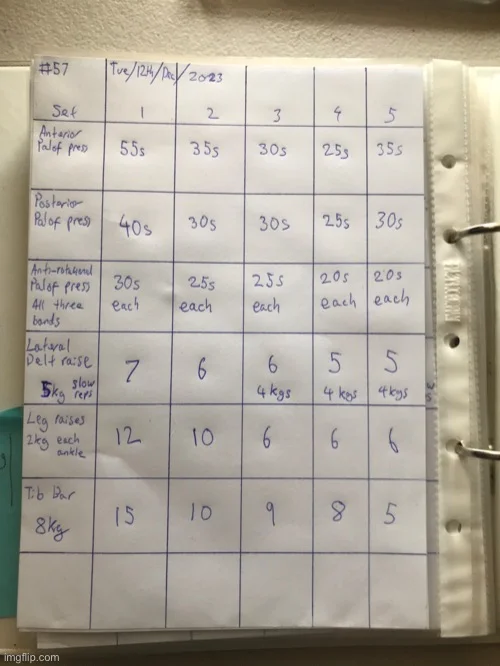 #57 Tue/12th/Dec/2023
Set 1 2 3 4 5
Anterior
Palof press 55s 35s 30s 25s 35s
Posterior
Palof press 40s 30s 30s 25s 30s
Anti-rotational
Palof press 30s 25s 25s 20s 20s
All three each each each each each
bands
Lateral
Delt raise 7 6 6 5 5
5kg slow reps 4kgs 4kgs 4kgs
Leg raises
2kg each 12 10 6 6 6
ankle
Tib Bar
8kg 15 10 9 8 5
imgflip.com